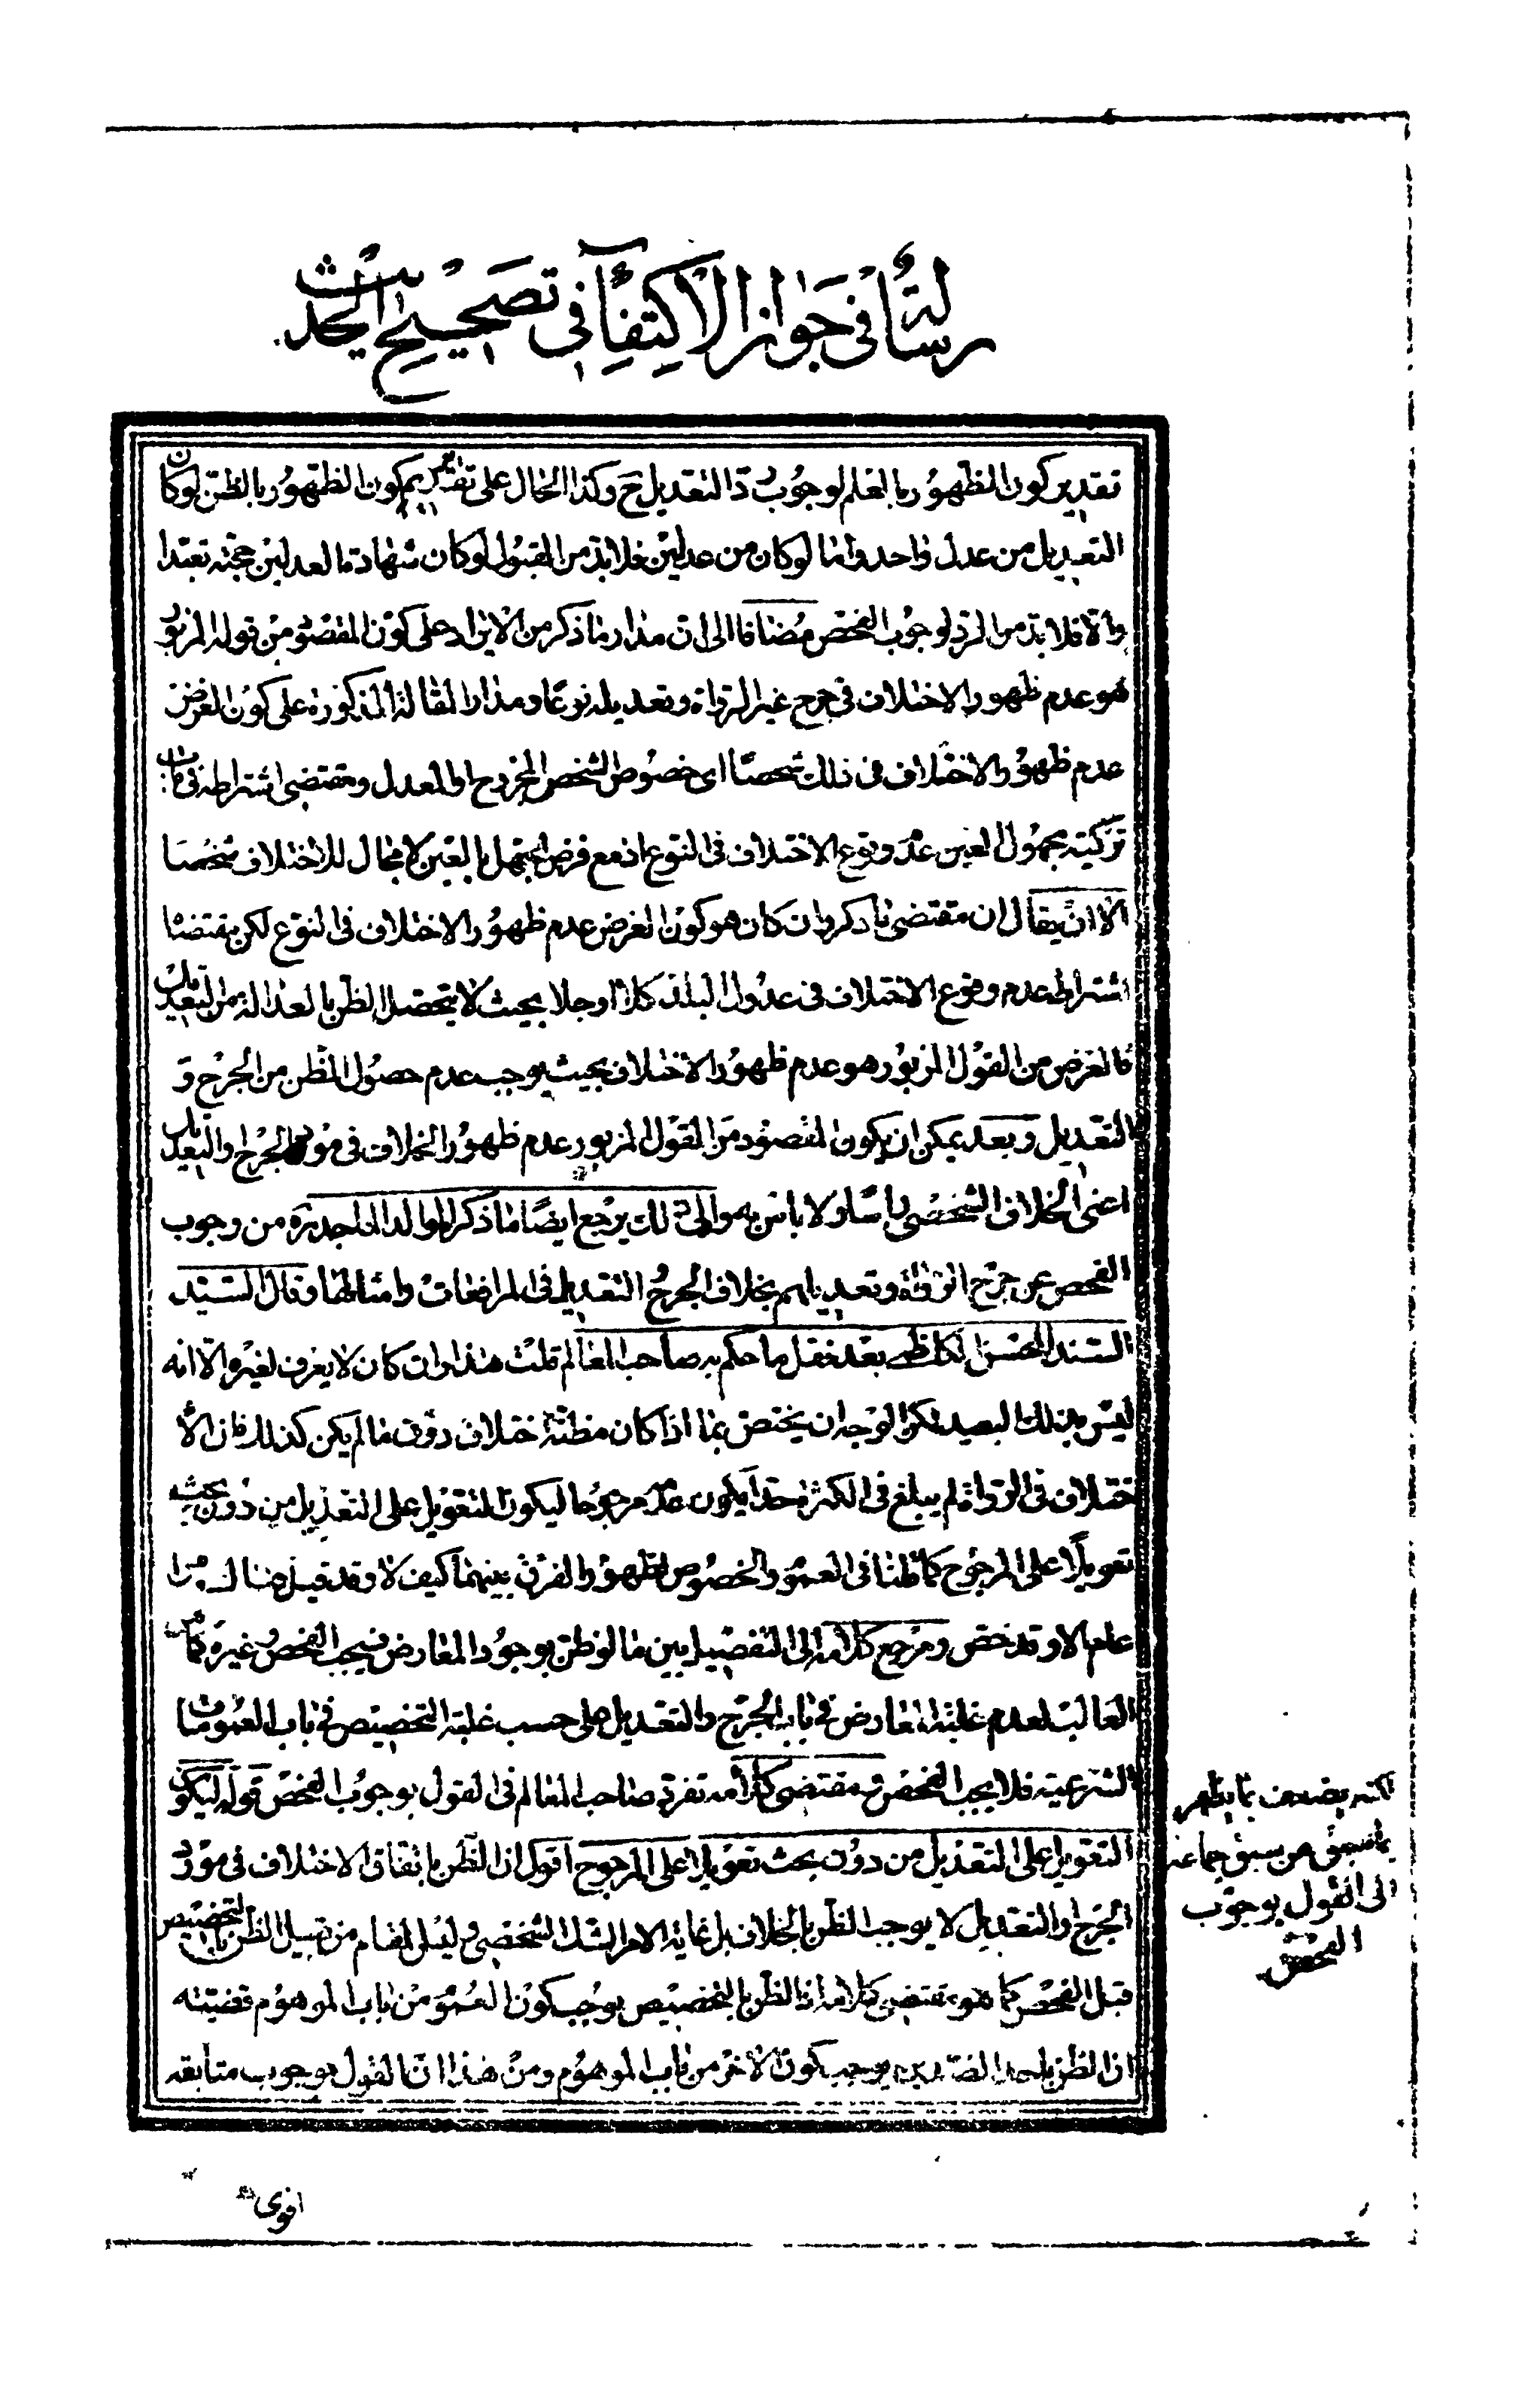 رسالة في جواز الاكتفاء في تصحيح الحديث
تقدير كون الظهور بالعلم لوجوب ردّ التعديل ح وكذا الحال على تقدير كون الظهور بالظن لو كان
التعديل من عدل واحد واما لو كان من عدلين فلا بد من القبول لو كان شهادة العدلين حجة تعبدا
والا فلا بد من الرد لوجوب الفحص مضافا الى ان مدار ما ذكر من الايراد على كون المقصود من قوله المزبور
هو عدم ظهور الاختلاف في جرح غير الرواة وتعديله نوعا ومدار المقالة المذكورة على كون الغرض
عدم ظهور الاختلاف في ذلك شخصا اى خصوص الشخص المجروح او المعدل ومقتضى اشتراطه في باب
تزكية مجهول العين عدم وقوع الاختلاف في النوع اذ مع فرض الجهل بالعين لا مجال للاختلاف شخصا
الا ان يقال ان مقتضى ما ذكر وان كان هو كون الغرض عدم ظهور الاختلاف في النوع لكن مقتضا
اشتراط عدم وقوع الاختلاف في عدول البلد كلا او جلا بحيث لا يتحصل الظن بالعدالة من التعديل
فالغرض من القول المزبور هو عدم ظهور الاختلاف بحيث يوجب عدم حصول الظن من الجرح و
التعديل وبعد يمكن ان يكون المقصود من القول المزبور عدم ظهور الخلاف في مورد الجرح والتعديل
اعنى الخلاف الشخصى راسا ولا باس به والى ذلك يرجع ايضا ما ذكره الوالد الماجد ره من وجوب
الفحص عن جرح الرواة وتعديلهم بخلاف الجرح التعديل في المرافعات وامثالها وقال السيد
السند المحسن الكاظمى بعد نقل ما حكم به صاحب المعالم قلت هذا وان كان لا يعرف لغيره الا انه
ليس بذلك البعيد لكن الوجه ان يختص بما اذا كان مظنة اختلاف دون ما لم يكن كذلك فان الا
ختلاف في الرواة لم يبلغ في الكثرة حدا يكون عدمه مرجوحا ليكون التعويل على التعديل من دون بحث
تعويلا على المرجوح كما قلنا في العموم والخصوص لظهور الفرق بينهما كيف لا وقد قيل هنالك ما من
عام الا وقد خص ومرجع كلامه الى التفصيل بين ما لو ظن بوجود المعارض فيجب الفحص وغيره كما
الغالب لعدم غلبة المعارض في باب الجرح والتعديل على حسب غلبة التخصيص في باب العمومات
الشرعية فلا يجب الفحص ومقتضى كلامه تفرد صاحب المعالم في القول بوجوب الفحص قوله ليكون
التعويل على التعديل من دون بحث تعويلا على المرجوح اقول ان الظن باتفاق الاختلاف في مورد
الجرح والتعديل لا يوجب الظن بالخلاف بل غاية الامر الشك الشخصى وليس المقام من قبيل الظن بالتخصيص
قبل الفحص كما هو مقتضى كلامه اذ الظن بالتخصيص يوجب كون العموم من باب الموهوم قضيته
ان الظن باحد الضدين يوجب كون الاخر من باب الموهوم ومن هذا ان القول بوجوب متابعة
لكنه يضعف بما يظهر
بما سبق من سبق جماعة
الى القول بوجوب
الفحص
اقوى